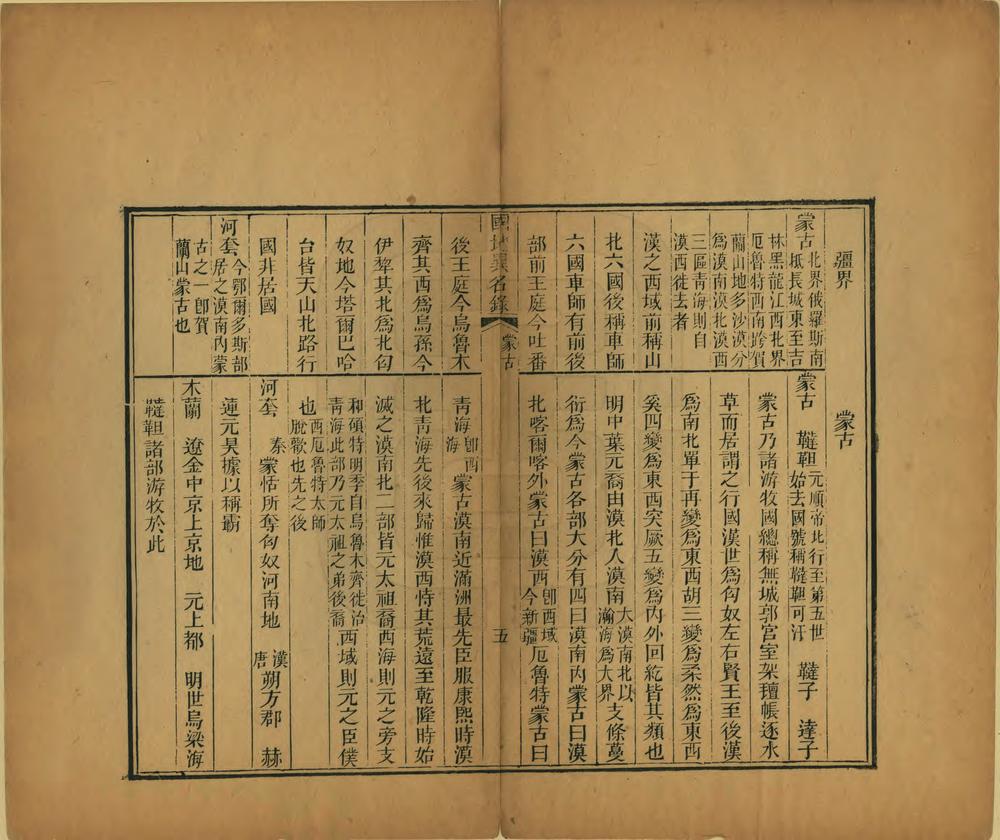 疆界
蒙古 北界俄羅斯南
抵長城東至吉
林黑龍江西北界
厄魯特西南跨賀
蘭山地多沙漠分
爲漠南漠北漠西
三區靑海則自
漠西徙去者
漢之西域前稱山
北六國後稱車師
六國車師有前後
部前王庭今吐番
蒙古
蒙古 韃靼 元順帝北行至第五世
始去國號稱韃靼可汗 韃子 達子
蒙古乃諸游牧國總稱無城郭宮室架氊帳逐水
草而居謂之行國漢世爲匈奴左右賢王至後漢
爲南北單于再變爲東西胡三變爲柔然爲東西
奚四變爲東西突厥五變爲內外回紇皆其類也
明中葉元裔由漠北入漠南 大漠南北以
瀚海爲大界 支條蔓
衍爲今蒙古各部大分有四曰漠南內蒙古曰漠
北喀爾喀外蒙古曰漠西 卽西域
今新疆 厄魯特蒙古曰
國地異名錄 蒙古 五
後王庭今烏魯木
齊其西爲烏孫今
伊犂其北爲北匈
奴地今塔爾巴哈
台皆天山北路行
國非居國
河套 今鄂爾多斯部
居之漠南內蒙
古之一卽賀
蘭山蒙古也
靑海 卽西
海 蒙古漠南近滿洲最先臣服康熙時漠
北靑海先後來歸惟漠西恃其荒遠至乾隆時始
滅之漠南北二部皆元太祖裔西海則元之旁支
和碩特明季自烏魯木齊徙治
靑海此部乃元太祖之弟後裔 西域則元之臣僕
也 西厄魯特太師
脫歡也先之後
河套 秦 蒙恬所奪匈奴河南地 漢
唐 朔方郡 赫
蓮元昊據以稱霸
木蘭 遼金中京上京地 元上都 明世烏梁海
韃靼諸部游牧於此